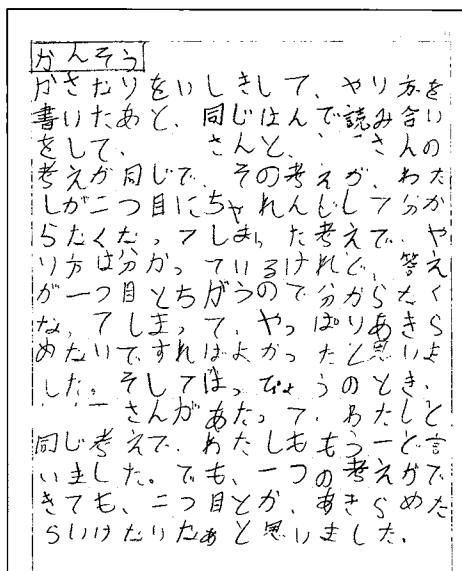 かんそう
かさなりをいしきして、やり方を
書いたあと、同じはんで、読み合い
をして、さんと、さんの
考えが同じで、その考えが、わた
しが二つ目にちゃれんじして分か
らたくなってしまった考えで、や
り方は分かっているけれど、答え
が一つ目とちがうので分からたく
なってしまって、やっぱりあきら
めたいですればよかったと思いま
した。そしてはっぴょうのとき、
さんがあたって、わたしと
同じ考えで、わたしももう一ど言
いました。でも、一つの考えがで
きても、二つ目とか、あきらめた
らいけたいたあと思いました。